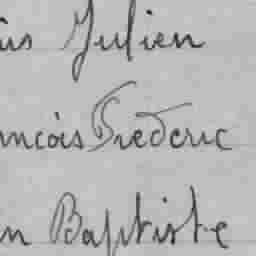 Julien
ncois Frederic
Baptiste